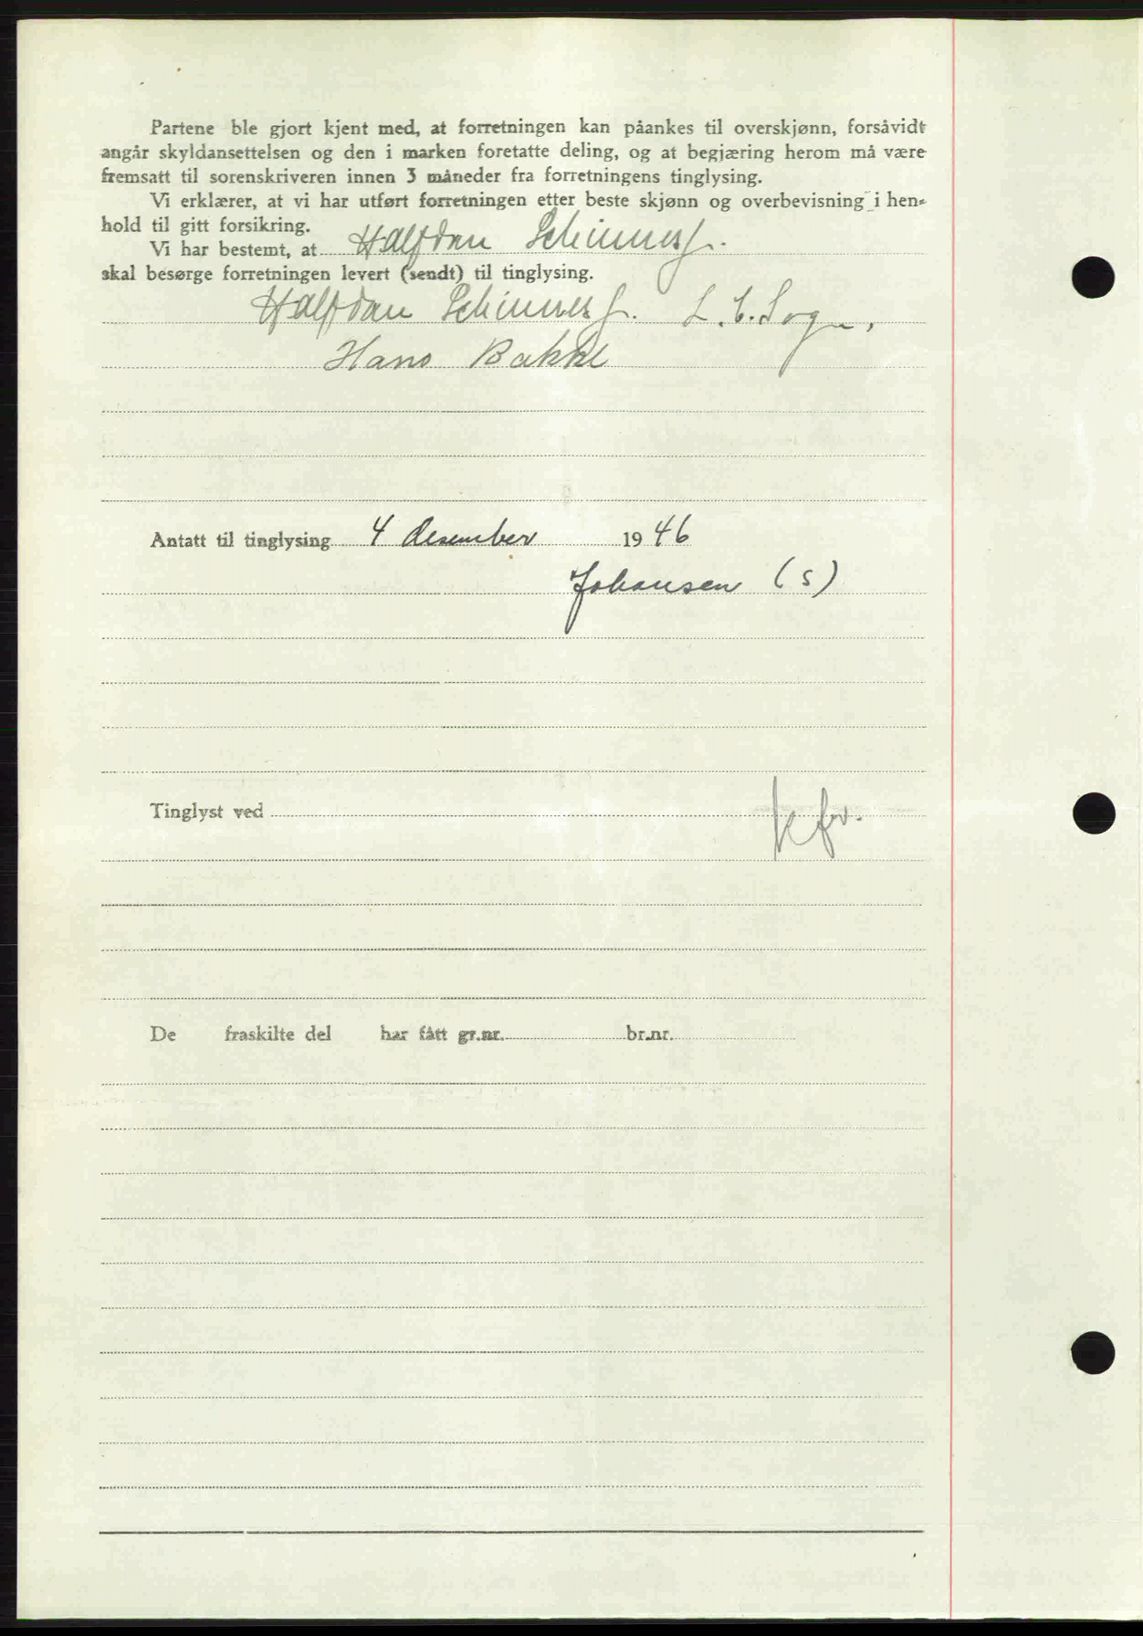 Partene ble gjort kjent med, at forretningen kan påankes til overskjønn, forsåvidt
angår skyldansettelsen og den i marken foretatte deling, og at begjæring herom må være
fremsatt til sorenskriveren innen 3 måneder fra forretningens tinglysing.
Vi erklærer, at vi har utført forretningen etter beste skjønn og overbevisning i hen-
hold til gitt forsikring.
Vi har bestemt, at Halfdan
skal besørge forretningen levert (sendt) til tinglysing.
Halfdan L. C. Sogn.
Hans Bakke
Antatt til tinglysing 4 desember 1946
Johansen (s)
Tinglyst ved
De fraskilte del har fått gr.nr. br.nr.